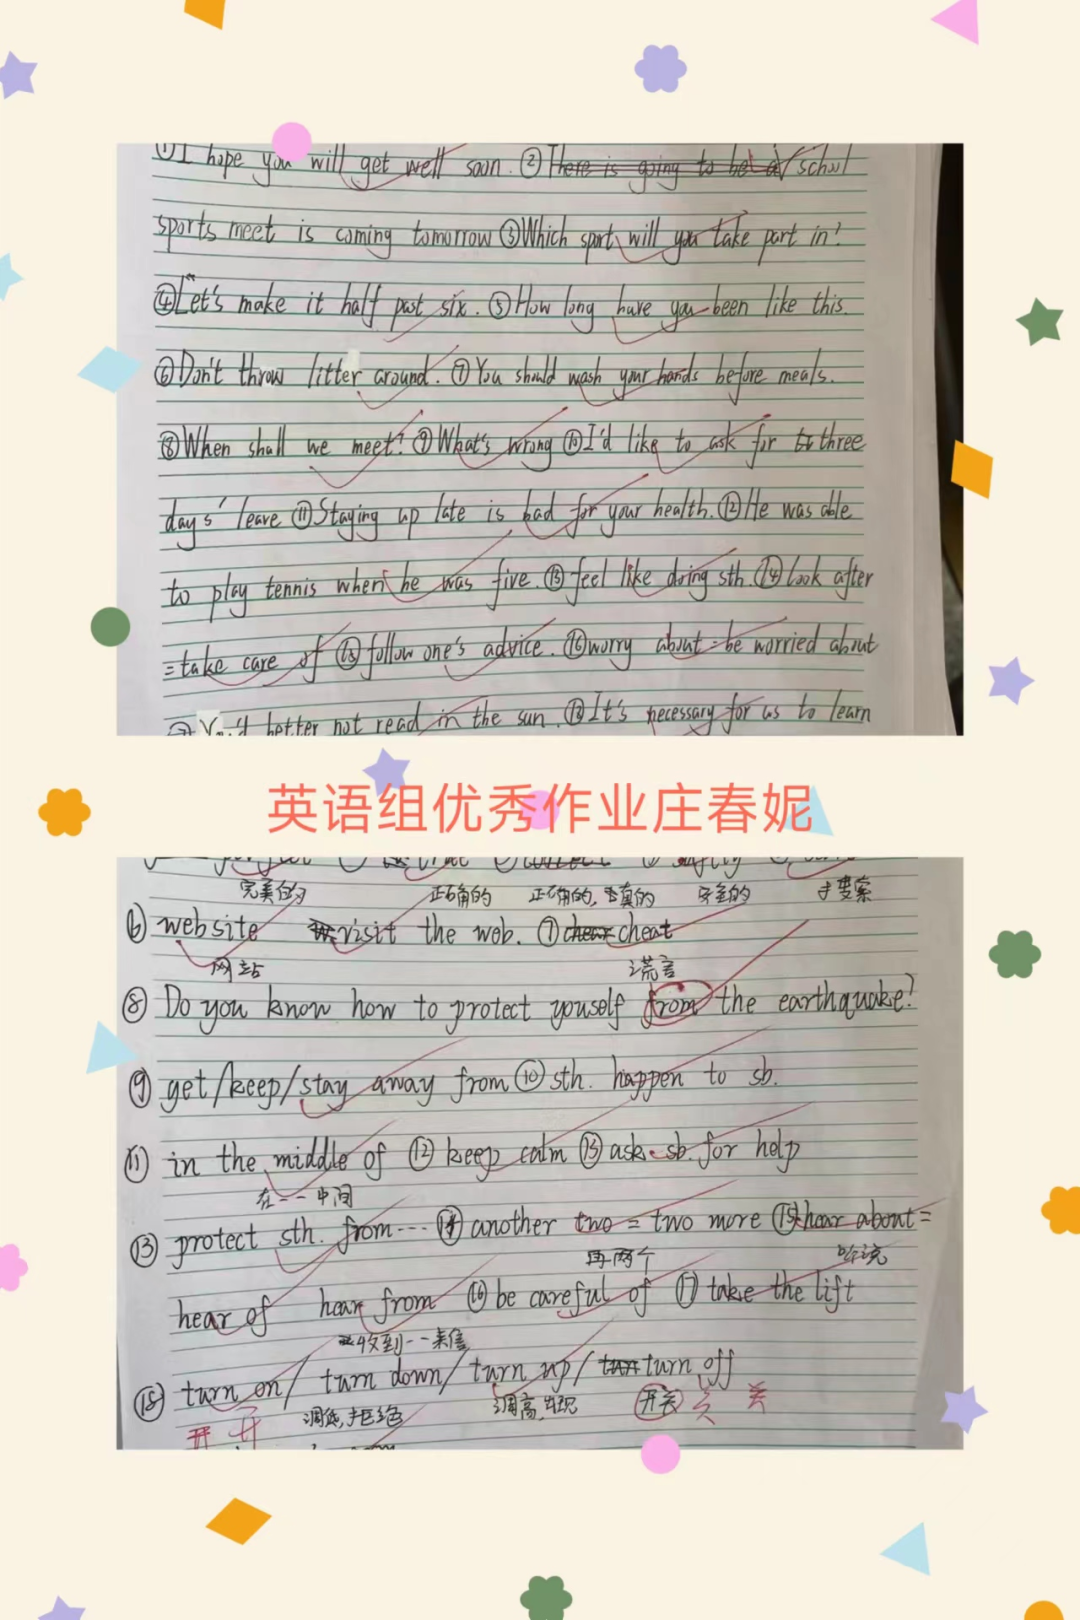 ①I hope you will get well soon. ②There is going to be a school
sports meet is coming tomorrow ③Which sport will you take part in?
④Let's make it half past six. ⑤How long have you been like this.
⑥Don't throw litter around. ⑦You should wash your hands before meals.
⑧When shall we meet? ⑨What's wrong ⑩I'd like to ask for three
days' leave ⑪Staying up late is bad for your health. ⑫He was able
to play tennis when he was five. ⑬feel like doing sth. ⑭look after
=take care of ⑮follow one's advice. ⑯worry about=be worried about
You'd better not read in the sun. ⑱It's necessary for us to learn
英语组优秀作业庄春妮
完美的 正确的 正确的, 真的 安全的 寻找,搜索
⑥ website visit the web. ⑦ cheat
网站 谎言
⑧ Do you know how to protect youself from the earthquake?
⑨ get/keep/stay away from ⑩ sth. happen to sb.
⑪ in the middle of ⑫ keep calm ⑬ ask sb. for help
在--中间
⑬ protect sth. from... ⑭ another two = two more ⑮hear about=
再两个 听说
hear of hear from ⑯ be careful of ⑰ take the lift
收到--来信
⑱ turn on/ turn down/ turn up/ turn off
开 调低,拒绝 调高,出现 开关 关